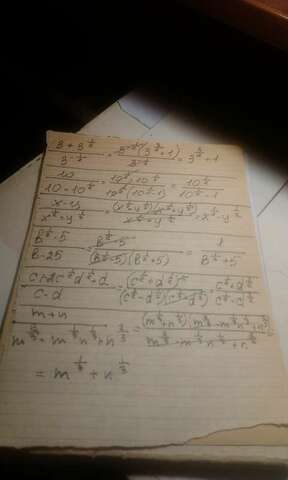 (3 + 3^{1/2}) / 3^{-1/2} = 3^{-1/2}(3^{3/2} + 1) / 3^{-1/2} = 3^{3/2} + 1
10 / (10 - 10^{1/2}) = 10^{1/2} · 10^{1/2} / 10^{1/2}(10^{1/2} - 1) = 10^{1/2} / (10^{1/2} - 1)
(x - y) / (x^{1/2} + y^{1/2}) = (x^{1/2} - y^{1/2})(x^{1/2} + y^{1/2}) / (x^{1/2} + y^{1/2}) = x^{1/2} - y^{1/2}
(b^{1/2} - 5) / (b - 25) = (b^{1/2} - 5) / (b^{1/2} - 5)(b^{1/2} + 5) = 1 / (b^{1/2} + 5)
(c + 2c^{1/2}d^{1/2} + d) / (c - d) = (c^{1/2} + d^{1/2})^2 / (c^{1/2} - d^{1/2})(c^{1/2} + d^{1/2}) = (c^{1/2} + d^{1/2}) / (c^{1/2} - d^{1/2})
(m + n) / (m^{2/3} - m^{1/3}n^{1/3} + n^{2/3}) = (m^{1/3} + n^{1/3})(m^{2/3} - m^{1/3}n^{1/3} + n^{2/3}) / (m^{2/3} - m^{1/3}n^{1/3} + n^{2/3})
= m^{1/3} + n^{1/3}